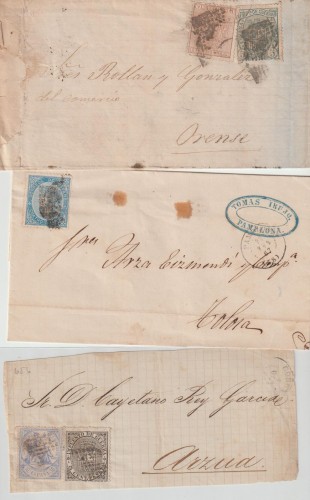 Rollan y Gonzalez
del comercio
Orense
TOMAS IRUJO
PAMPLONA
Sres Arza Eizmendi y Comp.ª
Tolosa
Sr. D. Cayetano Rey Garcia
Arzua